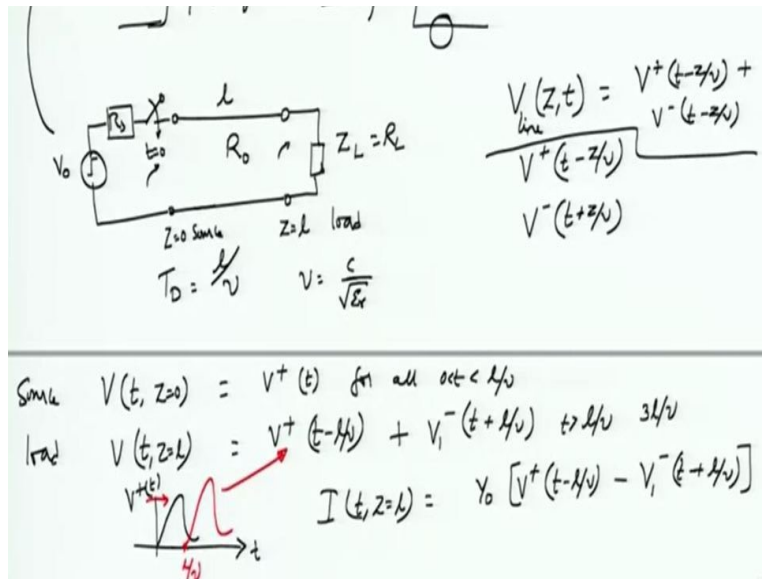 l
R_s
t=0
R_0
Z_L = R_L
V_0
Z=0 Source
Z=l load
T_D = l/v
v = c/√ε_r
V_line (z,t) = V^+(t-z/v) +
V^-(t-z/v)
V^+(t-z/v)
V^-(t+z/v)
Source V(t, z=0) = V^+(t) for all 0<t< l/v
load V(t, z=l) = V^+(t-l/v) + V_1^-(t+l/v) t> l/v 3l/v
V^+(t)
t
l/v
I(t, z=l) = Y_0 [V^+(t-l/v) - V_1^-(t+l/v)]